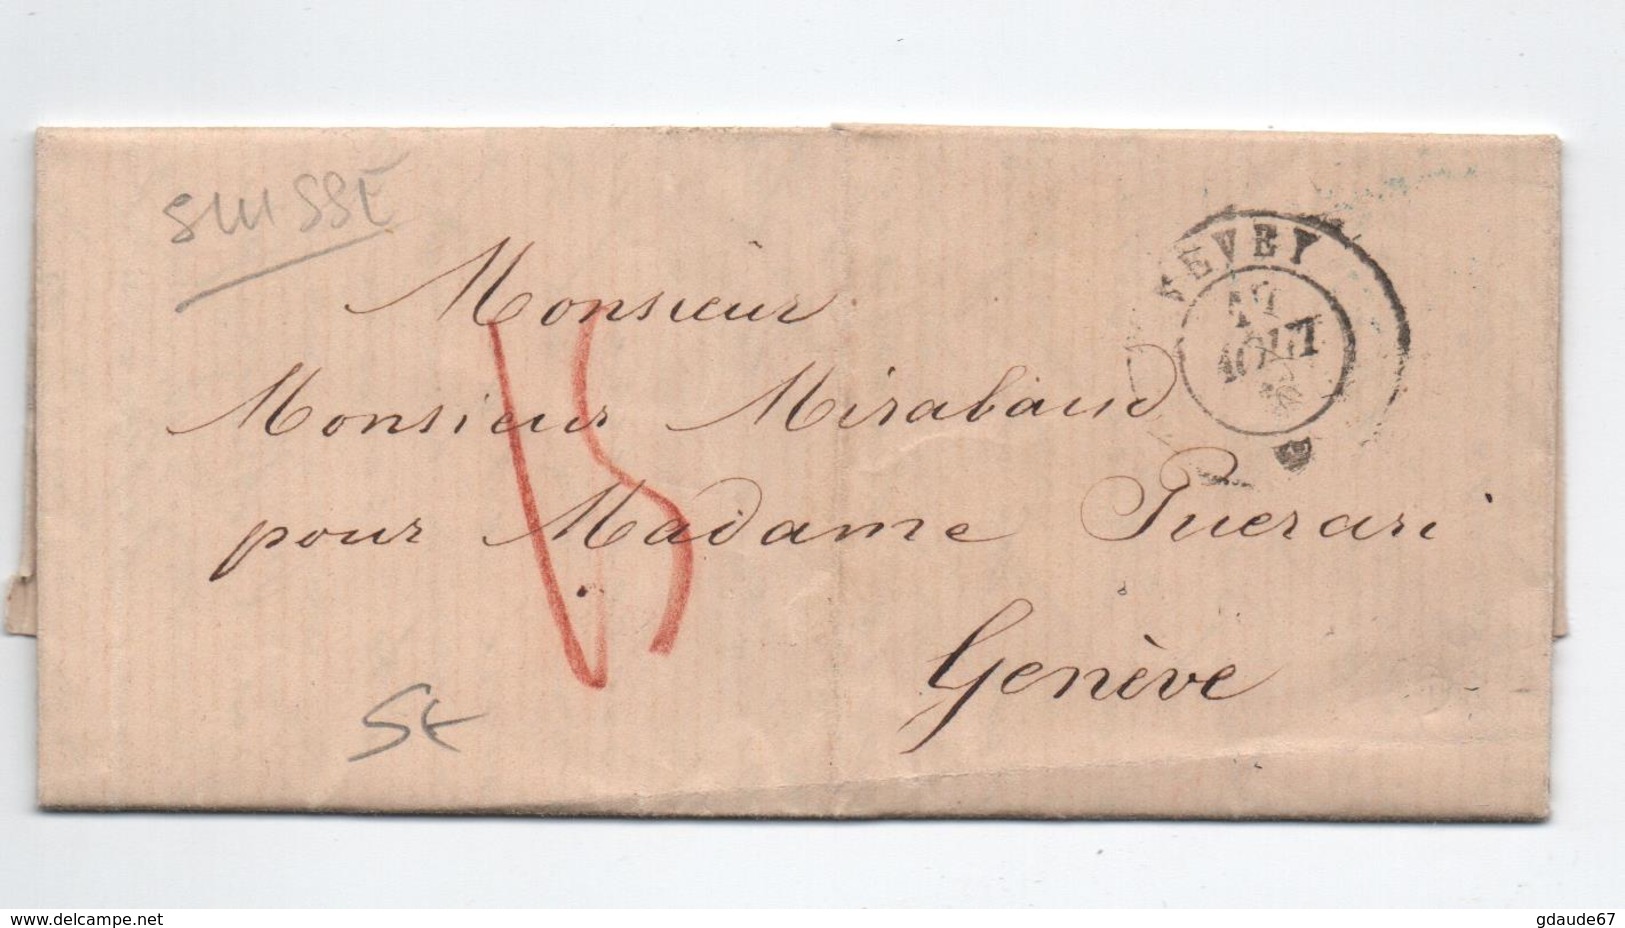 SUISSE
VEVEY
AOUT
Monsieur
Monsieur Mirabaud
pour Madame Puerari
Genève
15
5€
www.delcampe.net
gdaude67